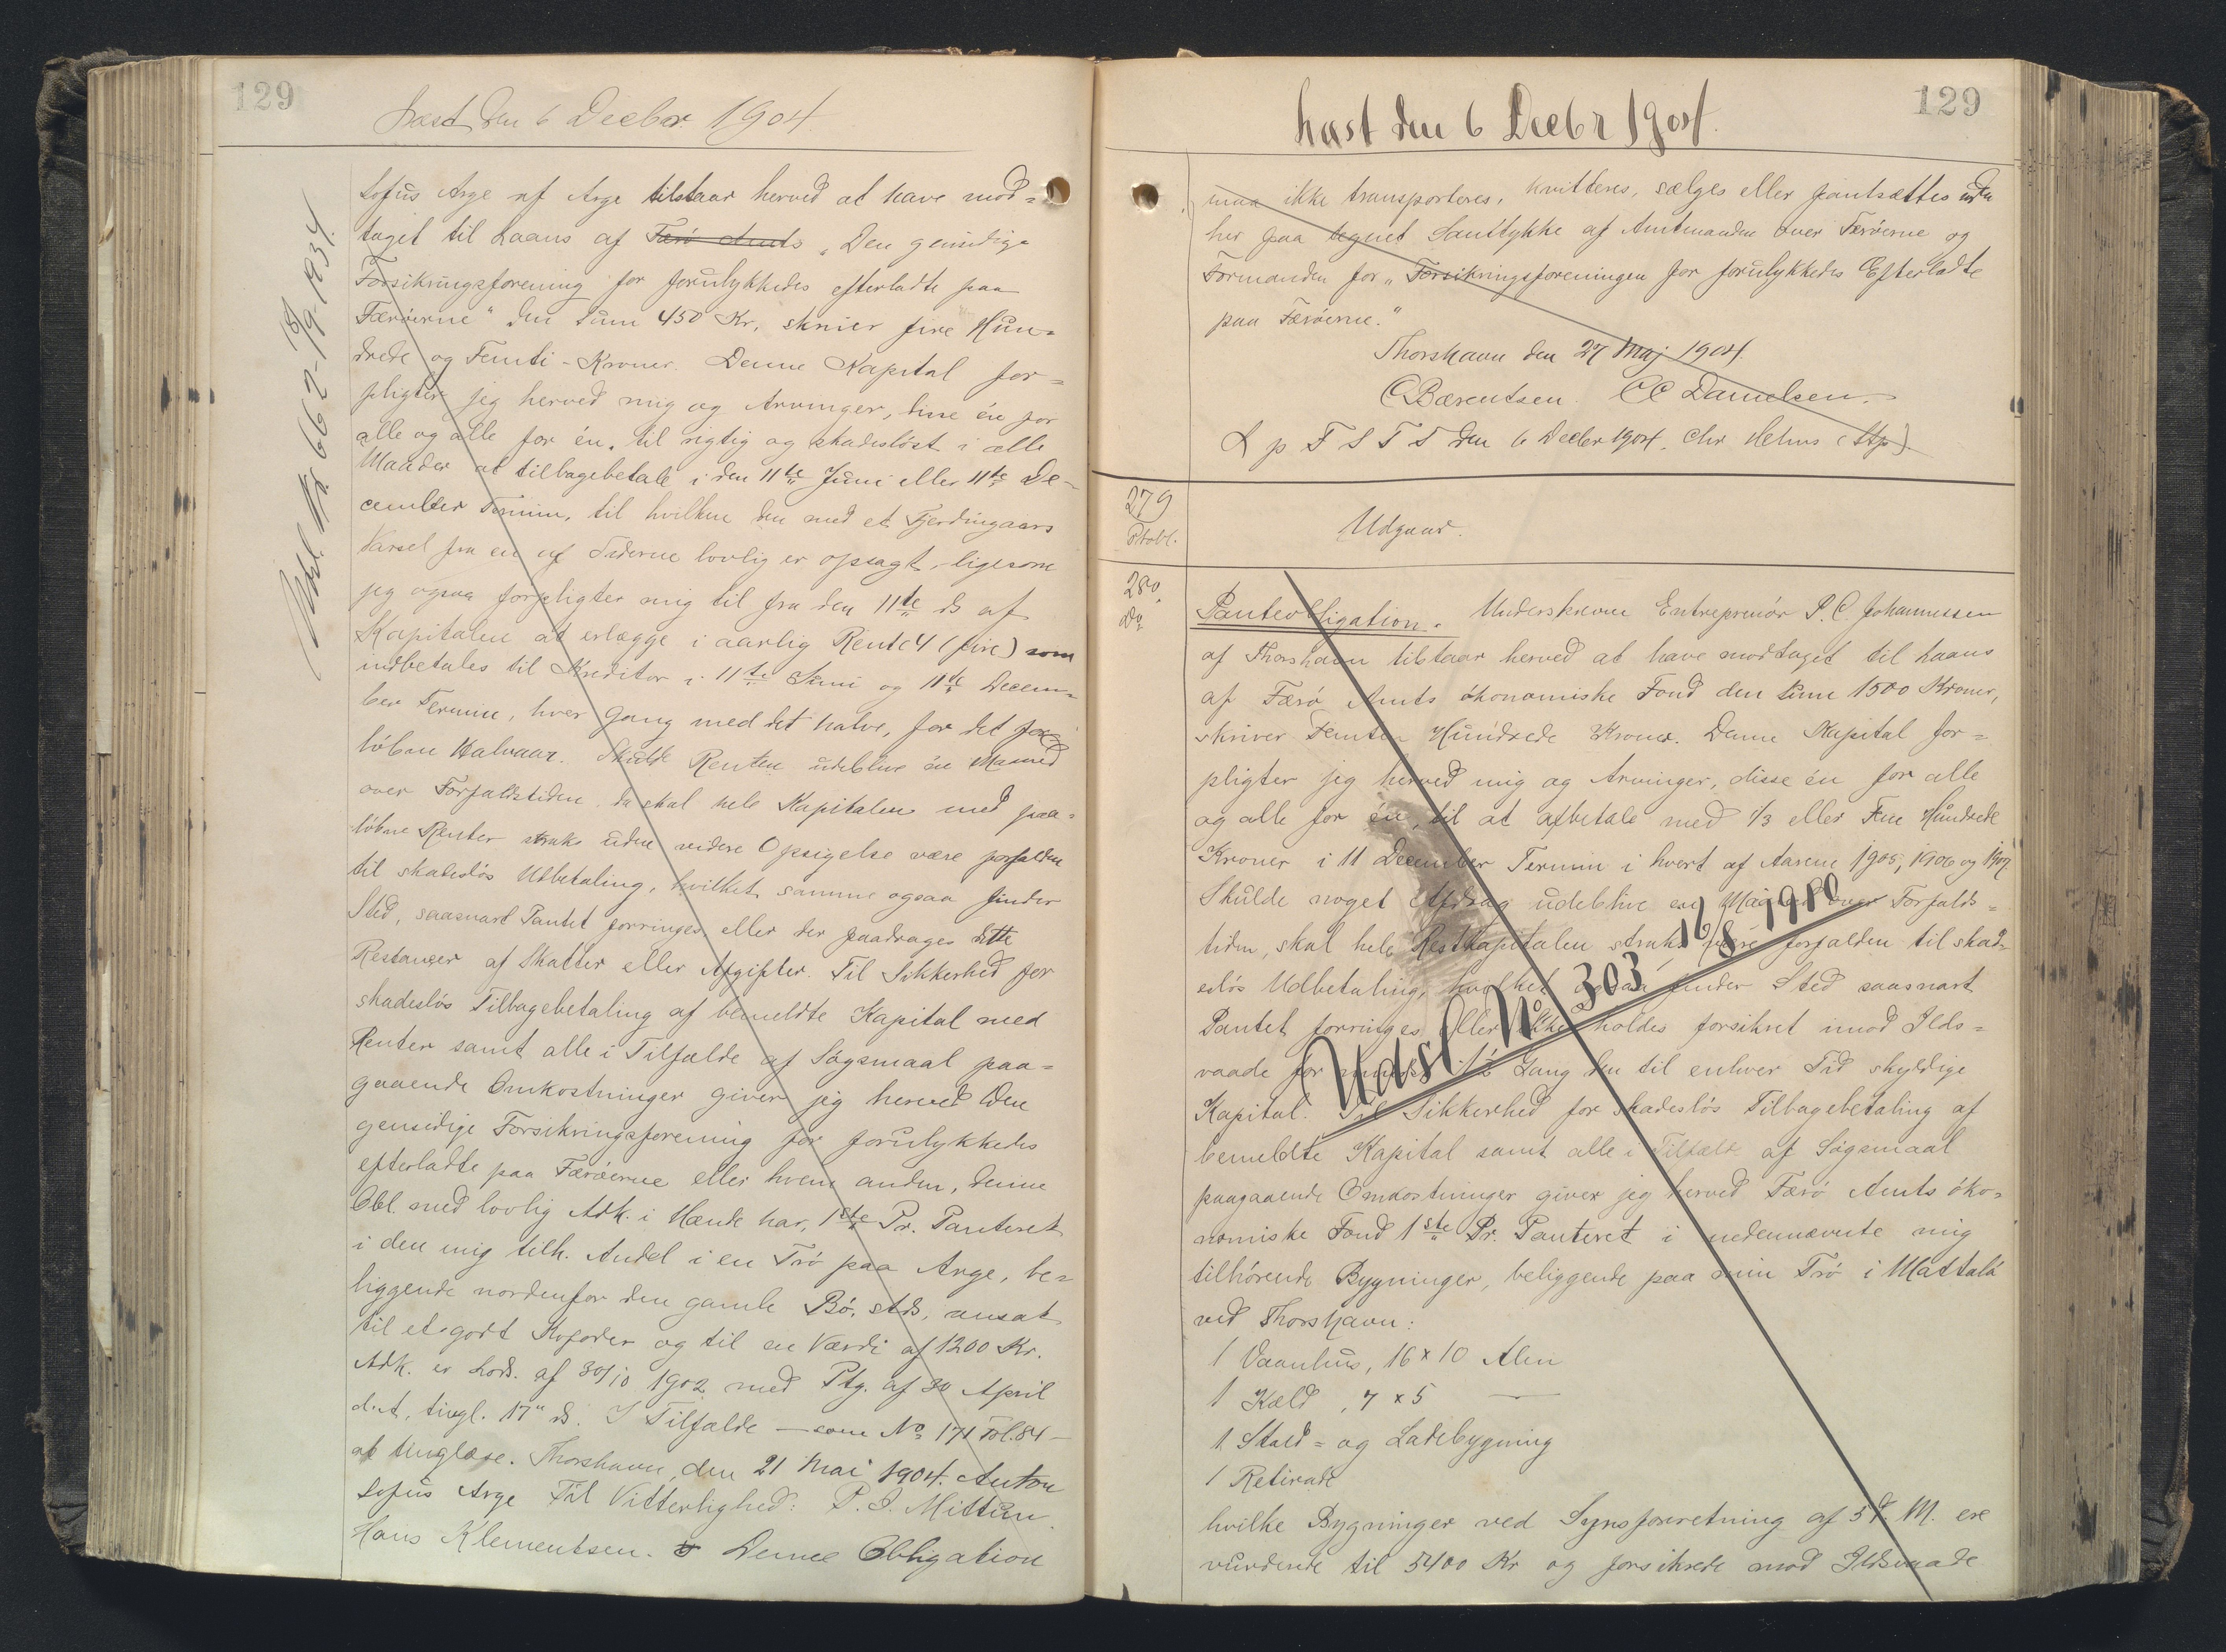 129
Læst den 6 Decbr. 1904.
Udsl. Nr. 662 - 18/9 1934.
Sofus Arge af Arge tilstaar herved at have mod-
taget til Laans af Færø Amts „Den gensidige
Forsikringsforening for forulykkedes efterladte paa
Færøerne" den Sum 450 Kr, skriver fire Hun-
drede og Femti-Kroner. Denne Kapital for-
pligter jeg herved mig og Arvinger, disse én for
alle og alle for én, til rigtig og skadesløst i alle
Maader at tilbagebetale i den 11te Juni eller 11te De-
cember Termin, til hvilken den med et Fjerdingaars
Varsel fra en af Siderne lovlig er opsagt, ligesom
jeg ogsaa forpligter mig til fra den 11te ds af
Kapitalen at erlægge i aarlig Rente 4 (fire) som
indbetales til Kreditor i 11te Juni og 11te Decem-
ber Termin, hver Gang med det halve, for det for-
løbne Halvaar. Skulde Renten udeblive én Maaned
over Forfaldstiden, da skal hele Kapitalen med paa-
løbne Renter straks uden videre Opsigelse være forfalden
til skadesløs Udbetaling, hvilket samme ogsaa finder
Sted, saasnart Pantet forringes eller der paadrages dette
Restancer af Skatter eller Afgifter. Til Sikkerhed for
skadesløs Tilbagebetaling af bemeldte Kapital med
Renter samt alle i Tilfælde af Søgsmaal paa-
gaaende Omkostninger giver jeg herved Den
gensidige Forsikringsforening for forulykkedes
efterladte paa Færøerne eller hvem anden, denne
Obl. med lovlig Adk. i Hænde har, 1ste Pr. Panteret
i den mig tilh. Andel i en Trø paa Arge, be-
liggende nordenfor den gamle Bø, stds, ansat
til et godt Kofoder og til en Værdi af 1200 Kr.
Adk. er Lods. af 30/10 1902 med Ptg. af 30 April
d.A, tingl. 17" ds. I Tilfælde — som No 171 Fol. 84 —
at tinglæse. Thorshavn, den 21 Mai 1904. Anton
Sofus Arge Til Vitterlighed: P. J. Mittún.
Hans Klementsen. Denne Obligation
129
Læst den 6 Decbr 1904.
maa ikke transporteres, kvitteres, sælges eller pantsættes uden
her paa tegnet Samtykke af Amtmanden over Færøerne og
Formanden for „Forsikringsforeningen for forulykkedes Efterladte
paa Færøerne."
Thorshavn den 27 Maj 1904.
C Bærentsen. CC Danielsen.
L p F S T S den 6 Decbr 1904. Chr Helms (Stp)
279
Ptobl.
Udgaar.
280.
Do
Panteobligation. Underskrevne Entreprenør P. C. Johannessen
af Thorshavn tilstaar herved at have modtaget til Laans
af Færø Amts økonomiske Fond den Sum 1500 Kroner,
skriver Femten Hundrede Kroner. Denne Kapital for-
pligter jeg herved mig og Arvinger, disse én for alle
og alle for én, til at afbetale med 1/3 eller Fem Hundrede
Kroner i 11 December Termin i hvert af Aarene 1905, 1906 og 1907
Skulde noget Afdrag udeblive en Maaned over Forfalds-
tiden, skal hele Restkapitalen straks være forfalden til skad-
esløs Udbetaling, hvilket ogsaa finder Sted saasnart
Pantet forringes eller ikke holdes forsikret imod Ilds-
vaade for mindst 1½ Gang den til enhver Tid skyldige
Kapital. Til Sikkerhed for skadesløs Tilbagebetaling af
bemeldte Kapital samt alle i Tilfælde af Søgsmaal
paagaaende Omkostninger giver jeg herved Færø Amts øko-
nomiske Fond 1ste Pr. Panteret i nedennævnte mig
tilhørende Bygninger, beliggende paa min Trø i Mattalá
ved Thorshavn:
1 Vaanhus, 16 x 10 Alen
1 Kæld , 7 x 5 —
1 Stald- og Ladebygning
1 Retirade
hvilke Bygninger ved Synsforretning af 5 d. M. ere
vurderede til 5400 Kr og forsikrede mod Ildsvaade
Udsl. No 303, 16/8 1980